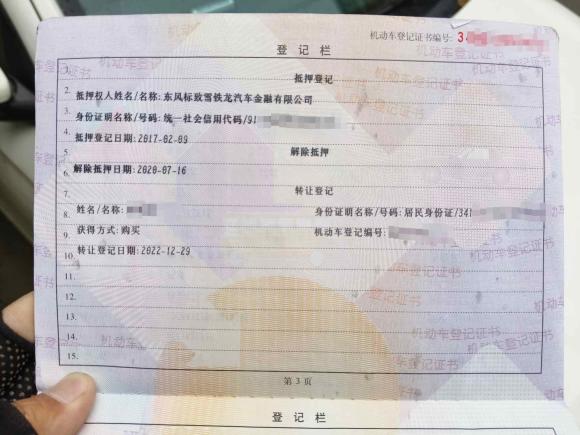 机动车登记证书编号: 34
登记栏
1. 抵押登记
2. 抵押权人姓名/名称:东风标致雪铁龙汽车金融有限公司
3. 身份证明名称/号码:统一社会信用代码/91
4. 抵押登记日期:2017-02-09
5. 解除抵押
6. 解除抵押日期:2020-07-16
7. 转让登记
8. 姓名/名称: 身份证明名称/号码:居民身份证/341
9. 获得方式:购买 机动车登记编号:
10. 转让登记日期:2022-12-29
11.
12.
13.
14.
15.
第 3 页
登记栏